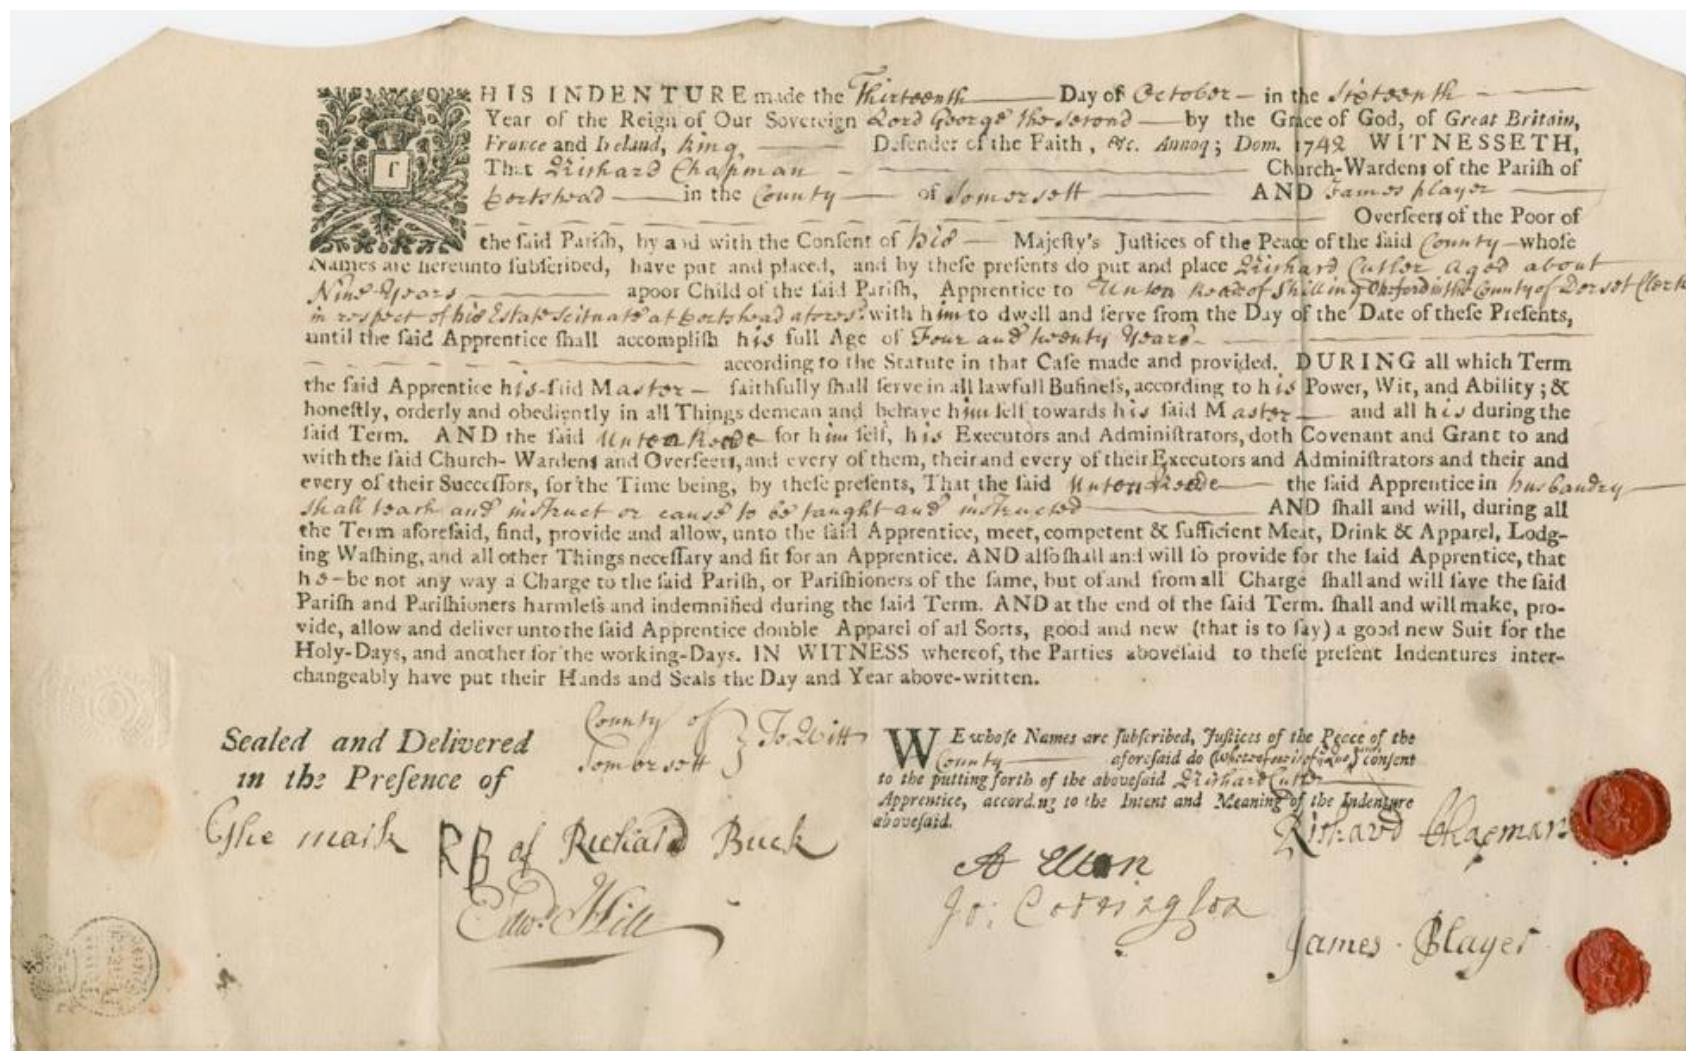 THIS INDENTURE made the Thirteenth Day of October in the Sixteenth
Year of the Reign of Our Sovereign Lord George the Second by the Grace of God, of Great Britain,
France and Ireland, King Defender of the Faith, &c. Annoq; Dom. 1742 WITNESSETH,
That Richard Chapman Church-Wardens of the Parish of
Portshead in the County of Somersett AND James player
Overseers of the Poor of
the said Parish, by and with the Consent of his Majesty's Justices of the Peace of the said County whose
Names are hereunto subscribed, have put and placed, and by these presents do put and place Richard Cutler aged about
Nine Years a poor Child of the said Parish, Apprentice to Unton Reede of Shilling Okeford in the County of Dorset Clerk
in respect of his Estate scituate at Portshead afores.d with him to dwell and serve from the Day of the Date of these Presents,
until the said Apprentice shall accomplish his full Age of Four and twenty Years
according to the Statute in that Case made and provided. DURING all which Term
the said Apprentice his said Master faithfully shall serve in all lawfull Business, according to his Power, Wit, and Ability; &
honestly, orderly and obediently in all Things demean and behave him self towards his said Master and all his during the
said Term. AND the said Unton Reede for him self, his Executors and Administrators, doth Covenant and Grant to and
with the said Church-Wardens and Overseers, and every of them, their and every of their Executors and Administrators and their and
every of their Successors, for the Time being, by these presents, That the said Unton Reede the said Apprentice in husbandry
shall teach and instruct or cause to be taught and instructed AND shall and will, during all
the Term aforesaid, find, provide and allow, unto the said Apprentice, meet, competent & sufficient Meat, Drink & Apparel, Lodg-
ing Washing, and all other Things necessary and fit for an Apprentice. AND also shall and will so provide for the said Apprentice, that
he be not any way a Charge to the said Parish, or Parishioners of the same, but of and from all Charge shall and will save the said
Parish and Parishioners harmless and indemnified during the said Term. AND at the end of the said Term. shall and will make, pro-
vide, allow and deliver unto the said Apprentice double Apparel of all Sorts, good and new (that is to say) a good new Suit for the
Holy-Days, and another for the working-Days. IN WITNESS whereof, the Parties abovesaid to these present Indentures inter-
changeably have put their Hands and Seals the Day and Year above-written.
Sealed and Delivered
in the Presence of
County of
Somersett } To Witt
The mark RB of Richard Buck
Edw.d Hill
WE whose Names are subscribed, Justices of the Peace of the
County aforesaid do consent
to the putting forth of the abovesaid Richard Cutler
Apprentice, according to the Intent and Meaning of the Indenture
abovesaid.
A Elton
Jo: Codrington
Richard Chapman
James Player